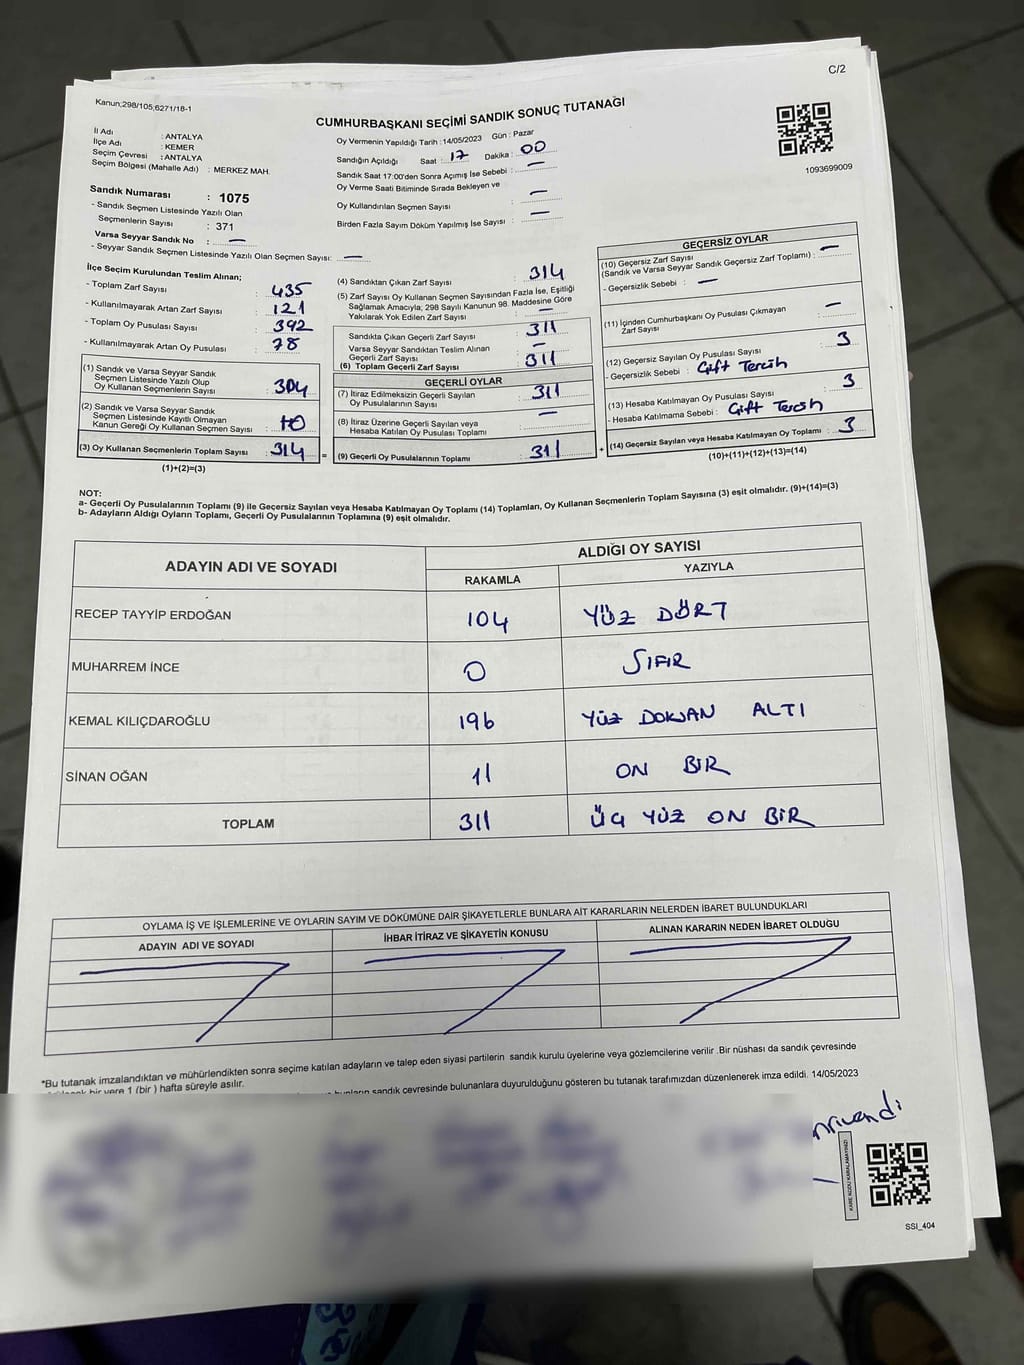 C/2
Kanun;298/105,6271/18-1
CUMHURBAŞKANI SEÇİMİ SANDIK SONUÇ TUTANAĞI
İl Adı : ANTALYA
İlçe Adı : KEMER
Seçim Çevresi : ANTALYA
Seçim Bölgesi (Mahalle Adı) : MERKEZ MAH.
Oy Vermenin Yapıldığı Tarih : 14/05/2023 Gün : Pazar
Sandığın Açıldığı Saat : 17 Dakika : 00
Sandık Saat 17:00'den Sonra Açımış İse Sebebi : —
Oy Verme Saati Bitiminde Sırada Bekleyen ve
Oy Kullandırılan Seçmen Sayısı : —
Birden Fazla Sayım Döküm Yapılmış İse Sayısı : —
1093699009
Sandık Numarası : 1075
- Sandık Seçmen Listesinde Yazılı Olan
Seçmenlerin Sayısı : 371
Varsa Seyyar Sandık No : —
- Seyyar Sandık Seçmen Listesinde Yazılı Olan Seçmen Sayısı: —
İlçe Seçim Kurulundan Teslim Alınan;
- Toplam Zarf Sayısı : 435
- Kullanılmayarak Artan Zarf Sayısı : 121
- Toplam Oy Pusulası Sayısı : 392
- Kullanılmayarak Artan Oy Pusulası : 78
(1) Sandık ve Varsa Seyyar Sandık
Seçmen Listesinde Yazılı Olup
Oy Kullanan Seçmenlerin Sayısı : 304
(2) Sandık ve Varsa Seyyar Sandık
Seçmen Listesinde Kayıtlı Olmayan
Kanun Gereği Oy Kullanan Seçmen Sayısı : 10
(3) Oy Kullanan Seçmenlerin Toplam Sayısı : 314 =
(1)+(2)=(3)
(4) Sandıktan Çıkan Zarf Sayısı : 314
(5) Zarf Sayısı Oy Kullanan Seçmen Sayısından Fazla İse, Eşitliği
Sağlamak Amacıyla, 298 Sayılı Kanunun 98. Maddesine Göre
Yakılarak Yok Edilen Zarf Sayısı : —
Sandıkta Çıkan Geçerli Zarf Sayısı : 311
Varsa Seyyar Sandıktan Teslim Alınan
Geçerli Zarf Sayısı : —
(6) Toplam Geçerli Zarf Sayısı : 311
GEÇERLİ OYLAR
(7) İtiraz Edilmeksizin Geçerli Sayılan
Oy Pusulalarının Sayısı : 311
(8) İtiraz Üzerine Geçerli Sayılan veya
Hesaba Katılan Oy Pusulası Toplamı : —
(9) Geçerli Oy Pusulalarının Toplamı : 311 +
GEÇERSİZ OYLAR
(10) Geçersiz Zarf Sayısı
(Sandık ve Varsa Seyyar Sandık Geçersiz Zarf Toplamı) : —
- Geçersizlik Sebebi : —
(11) İçinden Cumhurbaşkanı Oy Pusulası Çıkmayan
Zarf Sayısı : —
(12) Geçersiz Sayılan Oy Pusulası Sayısı : 3
- Geçersizlik Sebebi : Çift Tercih
(13) Hesaba Katılmayan Oy Pusulası Sayısı : 3
- Hesaba Katılmama Sebebi : Çift Tercih
(14) Geçersiz Sayılan veya Hesaba Katılmayan Oy Toplamı : 3
(10)+(11)+(12)+(13)=(14)
NOT:
a- Geçerli Oy Pusulaları Toplamı (9) ile Geçersiz Sayılan veya Hesaba Katılmayan Oy Toplamı (14) Toplamları, Oy Kullanan Seçmenlerin Toplam Sayısına (3) eşit olmalıdır. (9)+(14)=(3)
b- Adayların Aldığı Oyların Toplamı, Geçerli Oy Pusulalarının Toplamına (9) eşit olmalıdır.
ADAYIN ADI VE SOYADI
ALDIĞI OY SAYISI
RAKAMLA YAZIYLA
RECEP TAYYİP ERDOĞAN 104 YÜZ DÖRT
MUHARREM İNCE 0 SIFIR
KEMAL KILIÇDAROĞLU 196 YÜZ DOKSAN ALTI
SİNAN OĞAN 11 ON BİR
TOPLAM 311 ÜÇ YÜZ ON BİR
OYLAMA İŞ VE İŞLEMLERİNE VE OYLARIN SAYIM VE DÖKÜMÜNE DAİR ŞİKAYETLERLE BUNLARA AİT KARARLARIN NELERDEN İBARET BULUNDUKLARI
ADAYIN ADI VE SOYADI İHBAR İTİRAZ VE ŞİKAYETİN KONUSU ALINAN KARARIN NEDEN İBARET OLDUĞU
*Bu tutanak imzalandıktan ve mühürlendikten sonra seçime katılan adayların ve talep eden siyasi partilerin sandık kurulu üyelerine veya gözlemcilerine verilir .Bir nüshası da sandık çevresinde
bir yere 1 (bir ) hafta süreyle asılır.
sandık çevresinde bulunanlara duyurulduğunu gösteren bu tutanak tarafımızdan düzenlenerek imza edildi. 14/05/2023
KARE KODU KARALAMAYINIZ!
SSI_404